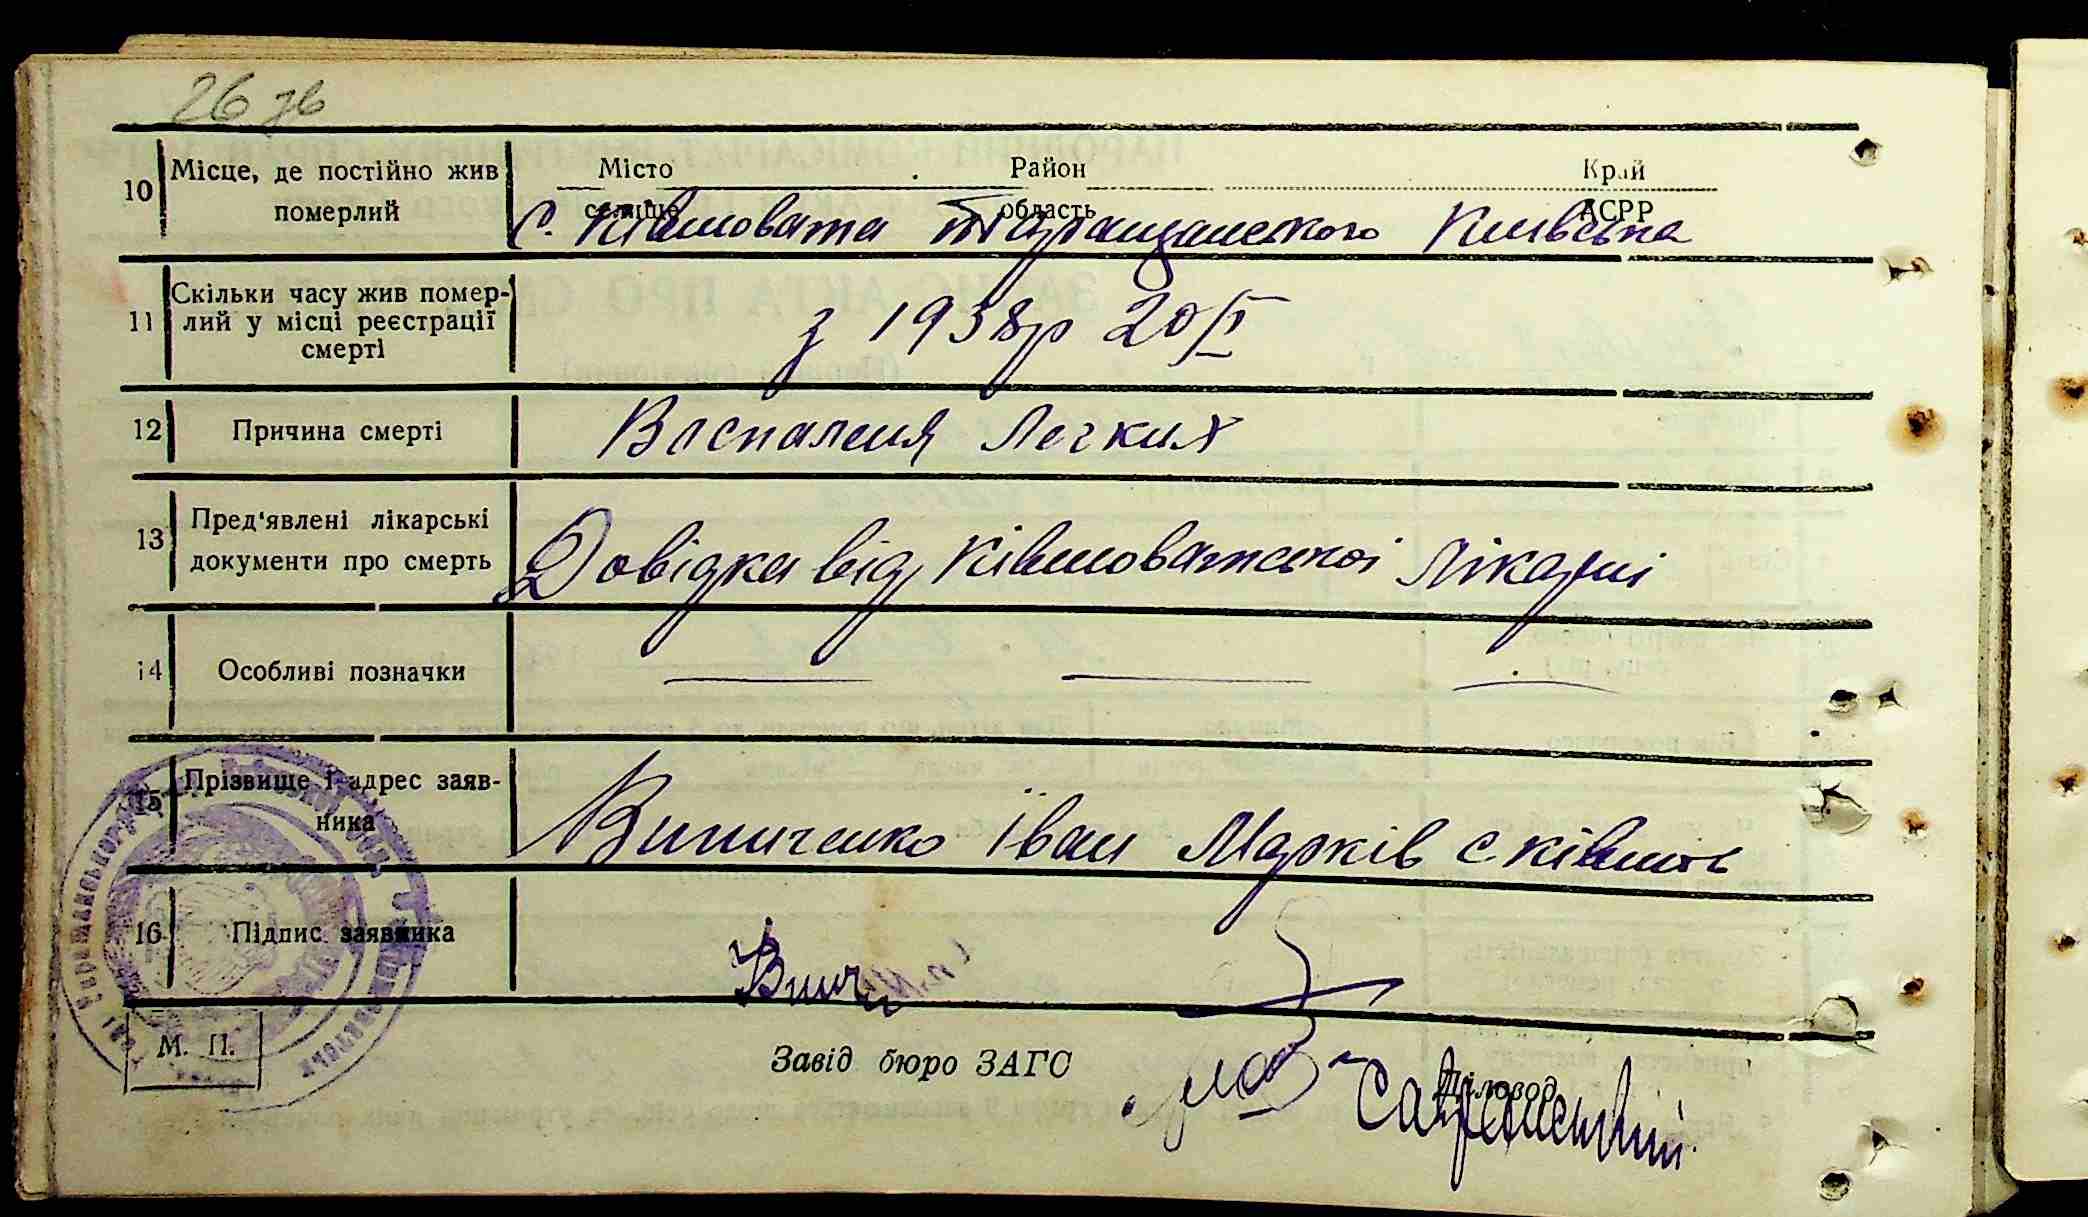 26 зв
10 Місце, де постійно жив померлий
Місто селище Район область Край АСРР
с. Ківшовата Таращанського Київська
11 Скільки часу жив помер-
лий у місці реєстрації
смерті
з 1938р 20/I
12 Причина смерті
Воспаления Легких
13 Пред'явлені лікарські
документи про смерть
Довідка від Ківшоватської лікарні
14 Особливі позначки
15 Прізвище і адрес заяв-
ника
Винниченко Іван Марків с. Ківшов
16 Підпис заявника
М. П.
Завід бюро ЗАГС
Діловод